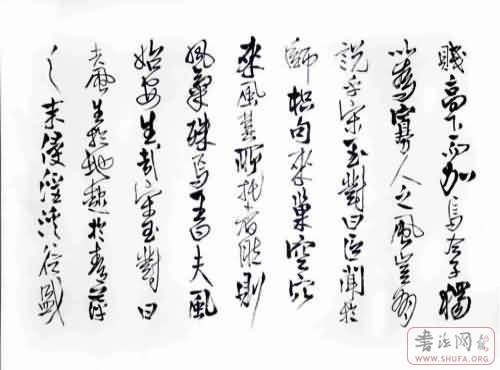 賤高下而加焉今子獨
以為寡人之風豈有
說乎宋玉對曰臣聞於
師枳句來巢空穴
來風其所托者然則
風氣殊焉王曰夫風
始安生哉宋玉對曰
夫風生於地起於青萍
之末侵淫溪谷盛
書法网
WWW.SHUFA.ORG